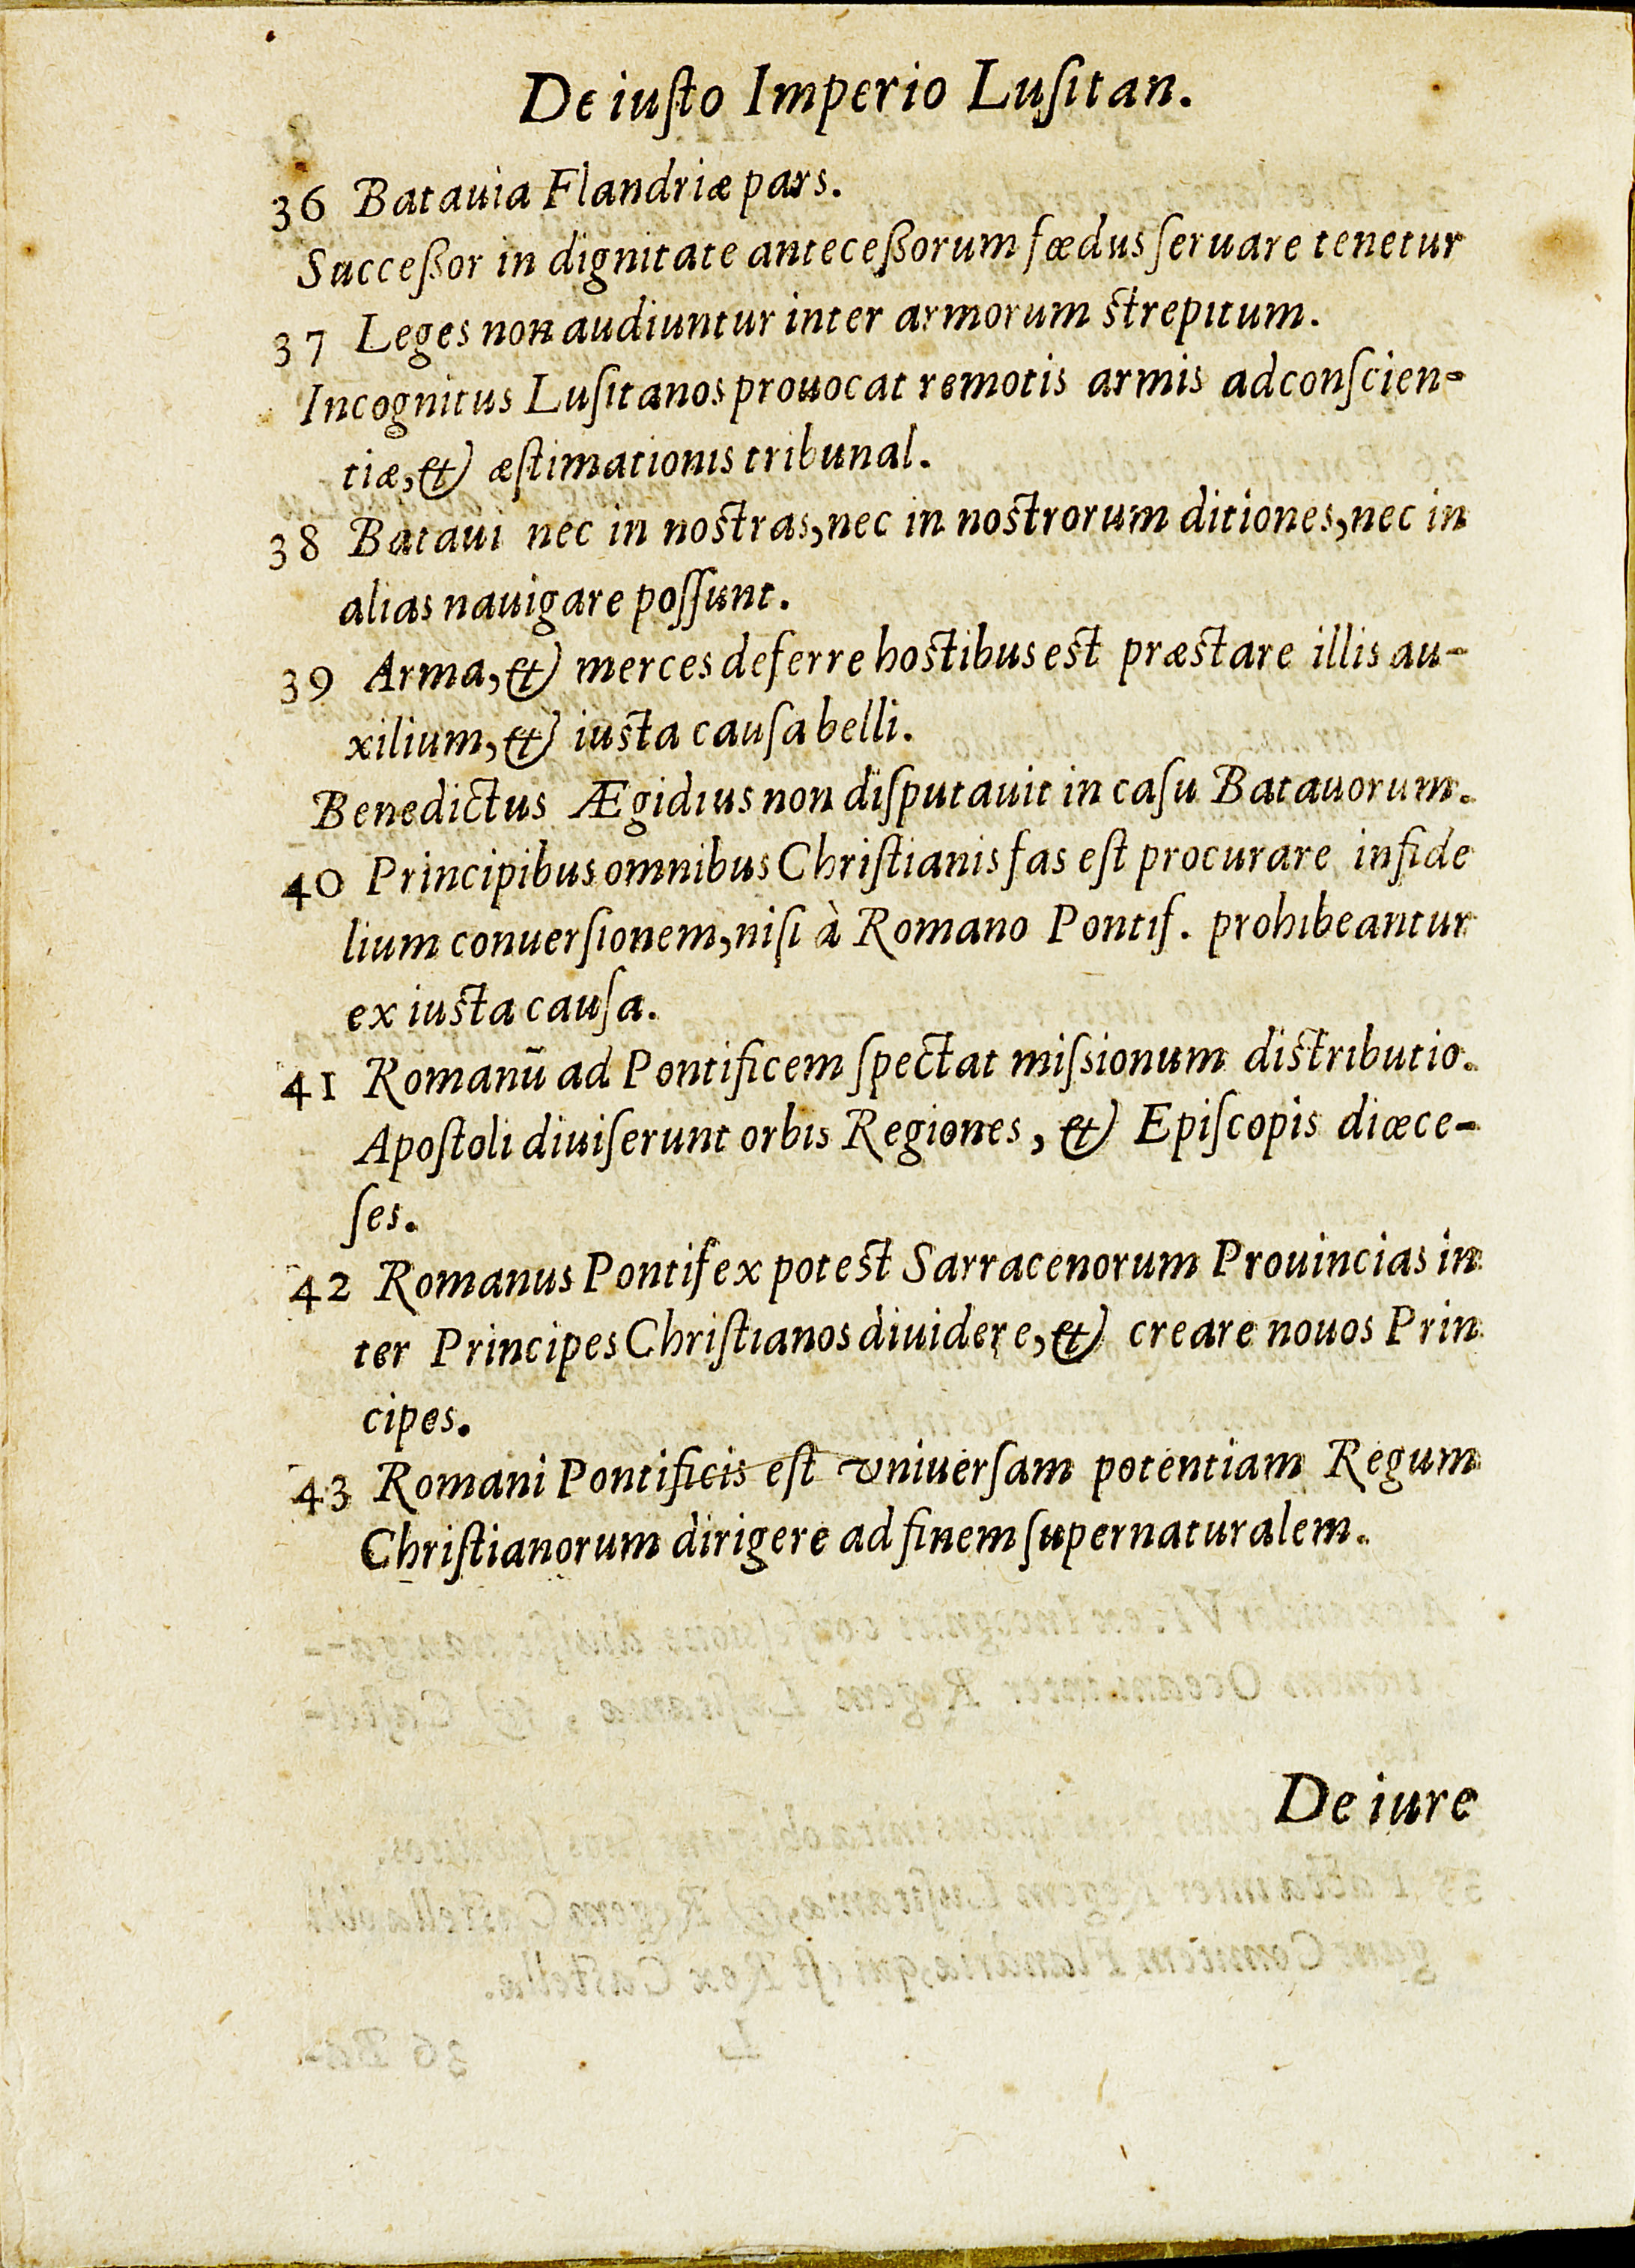 De iuſto Imperio Luſitan.
36 Batauia Flandriæ pars.
Succeßor in dignitate anteceßorum fœdus ſeruare tenetur
37 Leges non audiuntur inter armorum ſtrepitum.
Incognitus Luſitanos prouocat remotis armis ad conſcien-
tiæ, & æſtimationis tribunal.
38 Bataui nec in noſtras, nec in noſtrorum ditiones, nec in
alias nauigare poſſunt.
39 Arma, & merces deferre hoſtibus eſt præſtare illis au-
xilium, & iuſta cauſa belli.
Benedictus Ægidius non diſputauit in caſu Batauorum.
40 Principibus omnibus Chriſtianis fas eſt procurare infide
lium conuerſionem, niſi à Romano Pontif. prohibeantur
ex iuſta cauſa.
41 Romanū ad Pontificem ſpectat miſsionum diſtributio.
Apoſtoli diuiſerunt orbis Regiones, & Epiſcopis diœce-
ſes.
42 Romanus Pontifex poteſt Sarracenorum Prouincias in
ter Principes Chriſtianos diuidere, & creare nouos Prin
cipes.
43 Romani Pontificis eſt vniuerſam potentiam Regum
Chriſtianorum dirigere ad finem ſupernaturalem.
De iure